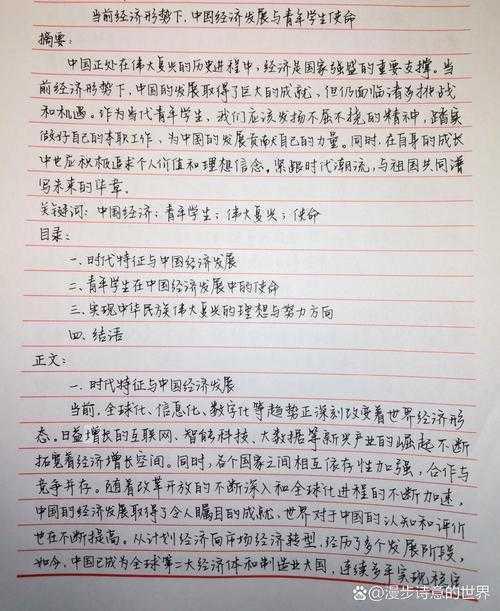 当前经济形势下，中国经济发展与青年学生使命
摘要：
中国正处在伟大复兴的历史进程中，经济是国家强盛的重要支撑。当
前经济形势下，中国的发展取得了巨大的成就，但仍面临诸多挑战
和机遇。作为当代青年学生，我们应该发扬不屈不挠的精神，踏实
做好自己的本职工作，为中国的发展贡献自己的力量。同时，在自身的成长
中也应积极追求个人价值和理想信念。紧跟时代潮流，与祖国共同谱
写未来的华章。
关键词：中国经济；青年学生；伟大复兴；使命
目录：
一.时代特征与中国经济发展
二.青年学生在中国经济发展中的使命
三.实现中华民族伟大复兴的理想与努力方向
四.结语
正文：
一.时代特征与中国经济发展
当前，全球化、信息化、数字化等趋势正深刻改变着世界经济形
态。日益增长的互联网、智能科技、大数据等新兴产业的崛起不断
拓宽着经济增长空间。同时，各个国家之间相互依存性加强，合作与
竞争并存。随着改革开放的不断深入和全球化进程的不断加速，
中国的经济发展取得了令人瞩目的成就，世界对于中国的认知和评价
也在不断提高。从计划经济向市场经济转型，经历了多个发展阶段，
如今，中国已成为全球第二大经济体和制造业大国，连续多年实现稳定
@漫步诗意的世界